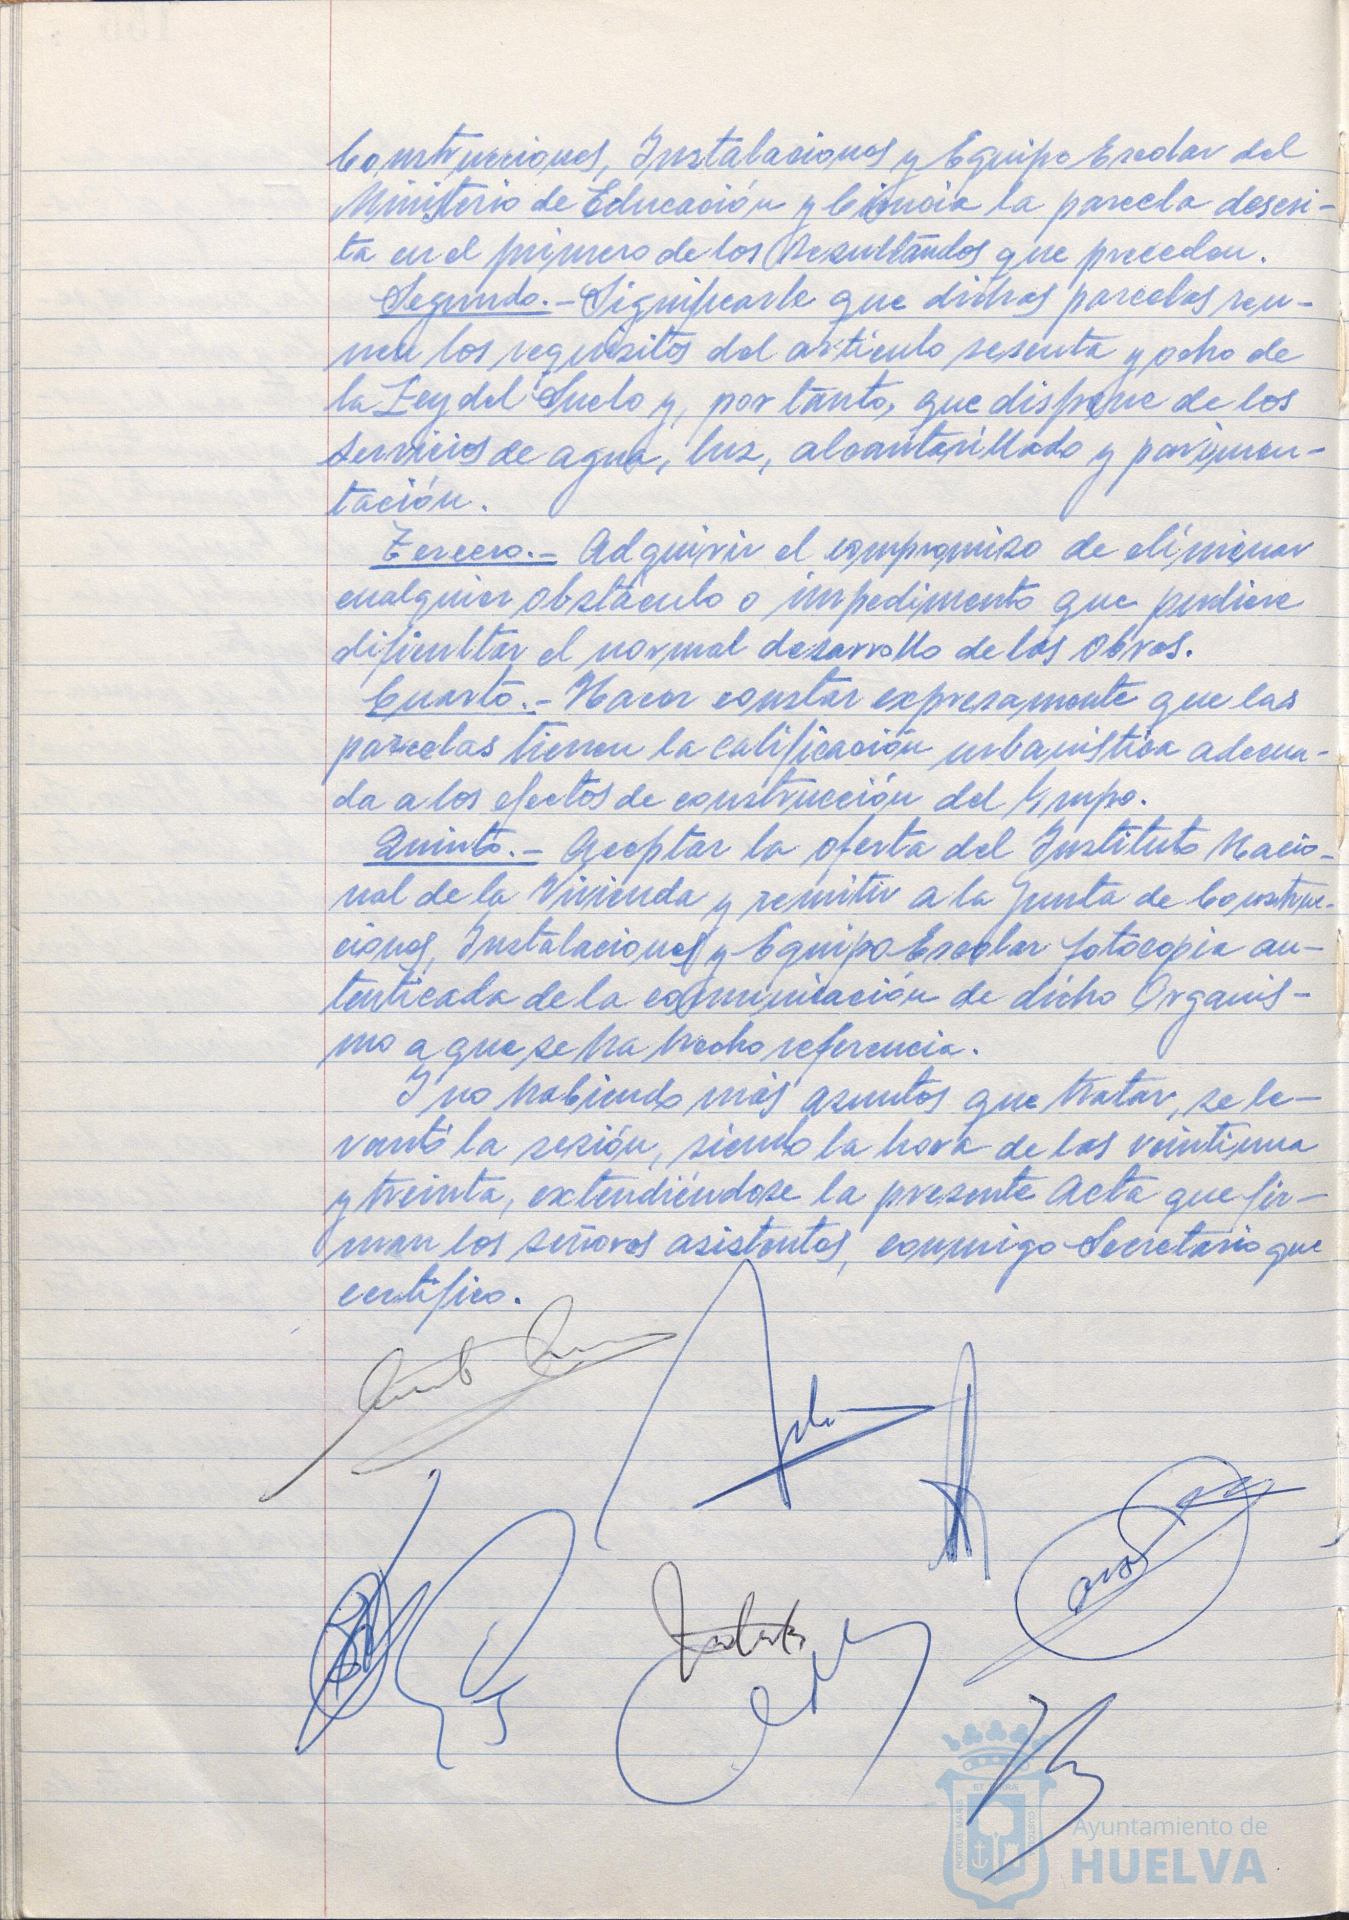 Construcciones, Instalaciones y Equipo Escolar del
Ministerio de Educación y Ciencia la parcela descri-
ta en el primero de los Resultandos que preceden.
Segundo.- Significarle que dichas parcelas reu-
nen los requisitos del artículo sesenta y ocho de
la Ley del Suelo y, por tanto, que dispone de los
servicios de agua, luz, alcantarillado y pavimen-
tación.
Tercero.- Adquirir el compromiso de eliminar
cualquier obstáculo o impedimento que pudiere
dificultar el normal desarrollo de las obras.
Cuarto.- Hacer constar expresamente que las
parcelas tienen la calificación urbanística adecua-
da a los efectos de construcción del Grupo.
Quinto.- Aceptar la oferta del Instituto Nacio-
nal de la Vivienda y remitir a la Junta de Construc-
ciones, Instalaciones y Equipo Escolar fotocopia au-
tenticada de la comunicación de dicho Organis-
mo a que se ha hecho referencia.
Y no habiendo más asuntos que tratar, se le-
vantó la sesión, siendo la hora de las veintiuna
y treinta, extendiéndose la presente Acta que fir-
man los señores asistentes, conmigo Secretario que
certifico.
PORTUS MARIS ET TERRAE CUSTODIA
Ayuntamiento de
HUELVA